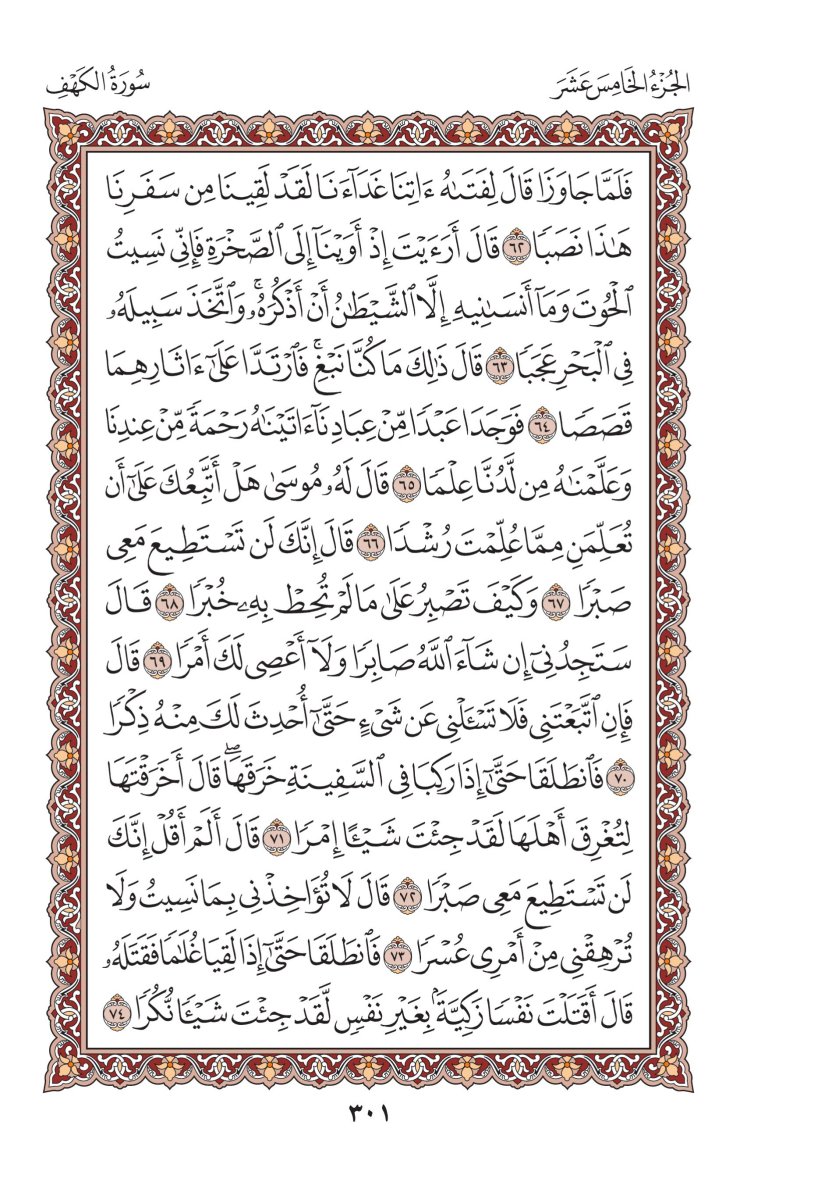 الجُزْءُ الخَامِسَ عَشَرَ
سُورَةُ الكَهْفِ
فَلَمَّا جَاوَزَا قَالَ لِفَتَىٰهُ ءَاتِنَا غَدَآءَنَا لَقَدْ لَقِينَا مِن سَفَرِنَا
هَٰذَا نَصَبٗا ٦٢ قَالَ أَرَءَيۡتَ إِذۡ أَوَيۡنَآ إِلَى ٱلصَّخۡرَةِ فَإِنِّي نَسِيتُ
ٱلۡحُوتَ وَمَآ أَنسَىٰنِيهِ إِلَّا ٱلشَّيۡطَٰنُ أَنۡ أَذۡكُرَهُۥۚ وَٱتَّخَذَ سَبِيلَهُۥ
فِي ٱلۡبَحۡرِ عَجَبٗا ٦٣ قَالَ ذَٰلِكَ مَا كُنَّا نَبۡغِۚ فَٱرۡتَدَّا عَلَىٰٓ ءَاثَارِهِمَا
قَصَصٗا ٦٤ فَوَجَدَا عَبۡدٗا مِّنۡ عِبَادِنَآ ءَاتَيۡنَٰهُ رَحۡمَةٗ مِّنۡ عِندِنَا
وَعَلَّمۡنَٰهُ مِن لَّدُنَّا عِلۡمٗا ٦٥ قَالَ لَهُۥ مُوسَىٰ هَلۡ أَتَّبِعُكَ عَلَىٰٓ أَن
تُعَلِّمَنِ مِمَّا عُلِّمۡتَ رُشۡدٗا ٦٦ قَالَ إِنَّكَ لَن تَسۡتَطِيعَ مَعِيَ
صَبۡرٗا ٦٧ وَكَيۡفَ تَصۡبِرُ عَلَىٰ مَا لَمۡ تُحِطۡ بِهِۦ خُبۡرٗا ٦٨ قَالَ
سَتَجِدُنِيٓ إِن شَآءَ ٱللَّهُ صَابِرٗا وَلَآ أَعۡصِي لَكَ أَمۡرٗا ٦٩ قَالَ
فَإِنِ ٱتَّبَعۡتَنِي فَلَا تَسۡـَٔلۡنِي عَن شَيۡءٍ حَتَّىٰٓ أُحۡدِثَ لَكَ مِنۡهُ ذِكۡرٗا
٧٠ فَٱنطَلَقَا حَتَّىٰٓ إِذَا رَكِبَا فِي ٱلسَّفِينَةِ خَرَقَهَاۖ قَالَ أَخَرَقۡتَهَا
لِتُغۡرِقَ أَهۡلَهَا لَقَدۡ جِئۡتَ شَيۡـًٔا إِمۡرٗا ٧١ قَالَ أَلَمۡ أَقُلۡ إِنَّكَ
لَن تَسۡتَطِيعَ مَعِيَ صَبۡرٗا ٧٢ قَالَ لَا تُؤَاخِذۡنِي بِمَا نَسِيتُ وَلَا
تُرۡهِقۡنِي مِنۡ أَمۡرِي عُسۡرٗا ٧٣ فَٱنطَلَقَا حَتَّىٰٓ إِذَا لَقِيَا غُلَٰمٗا فَقَتَلَهُۥ
قَالَ أَقَتَلۡتَ نَفۡسٗا زَكِيَّةَۢ بِغَيۡرِ نَفۡسٖ لَّقَدۡ جِئۡتَ شَيۡـٔٗا نُّكۡرٗا ٧٤
٣٠١